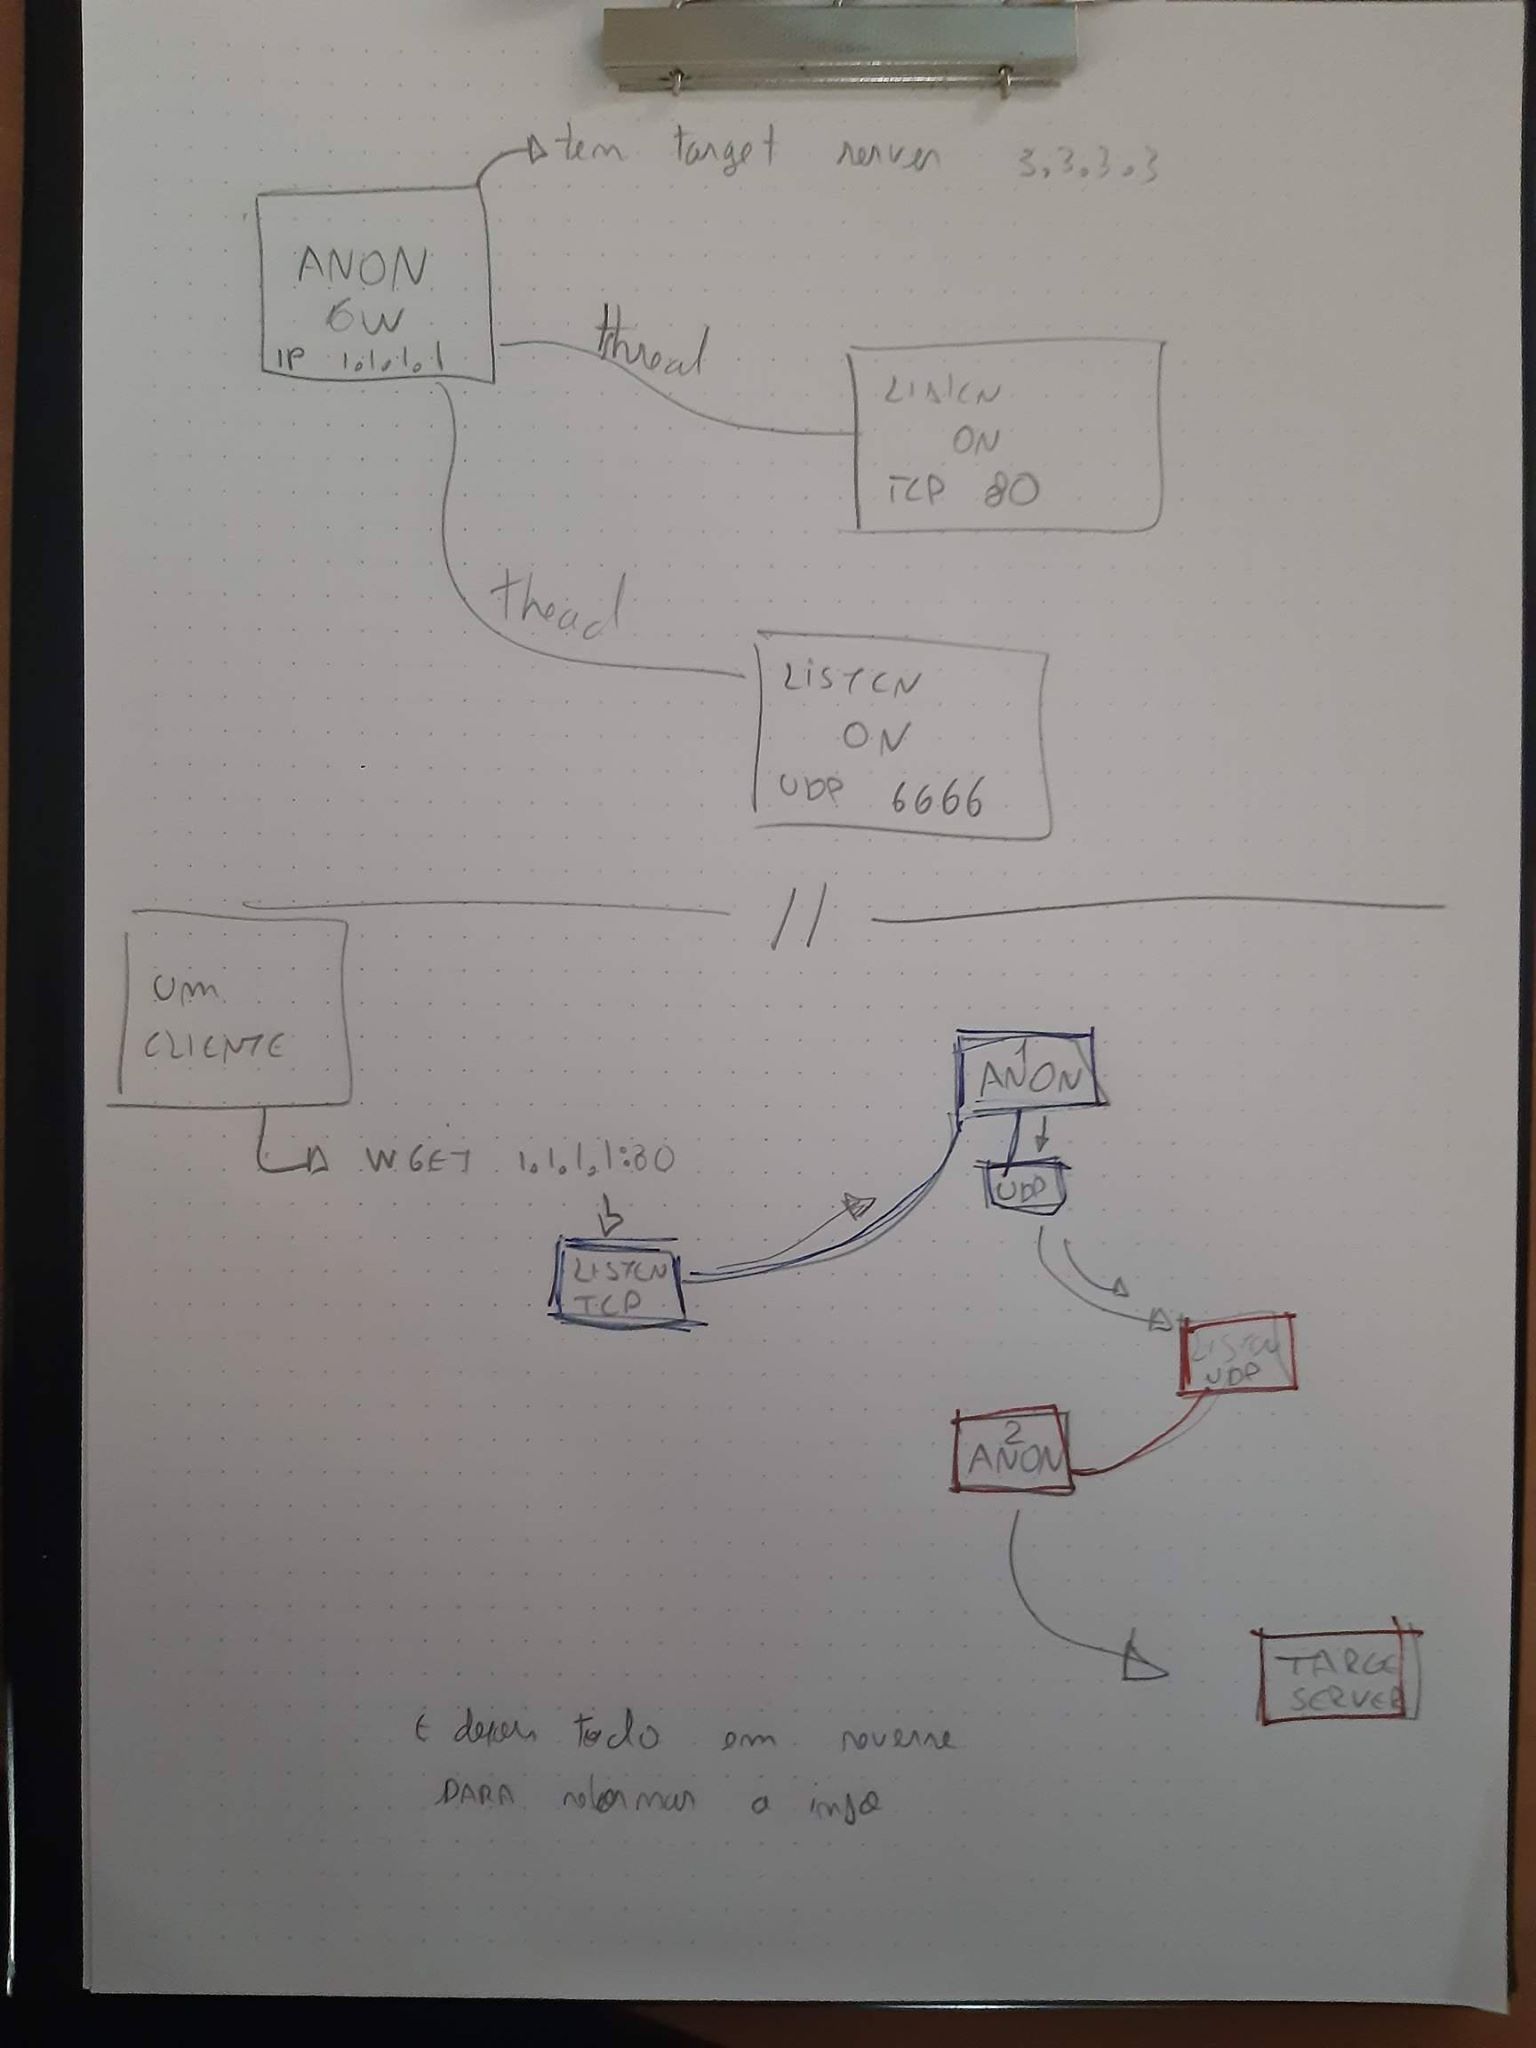 tem target server 3.3.3.3
ANON
GW
IP 1.1.1.1
thread
LISTEN
ON
TCP 80
thead
LISTEN
ON
UDP 6666
//
UM
CLIENTE
WGET 1.1.1.1:80
1
ANON
UDP
LISTEN
TCP
LISTEN
UDP
2
ANON
TARGE
SERVER
E depois todo em reverse
PARA retornar a info